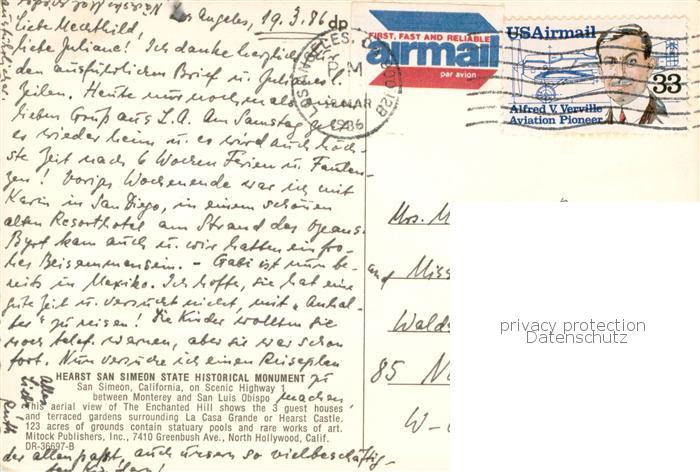 Los Angeles, 19.3.86
Liebe Mechthild,
liebe Juliane! Ich danke herzlich
den ausführlichen Brief u. Julianes
Zeilen. Heute nur nochmals einen
lieben Gruß aus L.A. Am Samstag geht
es wieder heim u. es wird auch höch-
ste Zeit nach 6 Wochen Ferien u. Faulen-
zen! Voriges Wochenende war ich mit
Karin in San Diego, in einem schönen
alten Resorthotel am Strand des Ozeans.
kam auch u. wir hatten ein fro-
hes Beisammensein. - Gabi ist nun be-
reits in Mexiko. Ich hoffe, sie hat eine
gute Zeit u. versucht nicht, mit "Anhal-
ter" zu reisen! Die Kinder wollten sie
noch telef. warnen, aber sie war schon
fort. Nun versuche ich einen Reiseplan
zu
machen
der allen paßt, auch unseren so vielbeschäftig-
ten Kindern!
Alles
Liebe
Ruth
HEARST SAN SIMEON STATE HISTORICAL MONUMENT
San Simeon, California, on Scenic Highway 1
between Monterey and San Luis Obispo
This aerial view of The Enchanted Hill shows the 3 guest houses
and terraced gardens surrounding La Casa Grande or Hearst Castle.
123 acres of grounds contain statuary pools and rare works of art.
Mitock Publishers, Inc., 7410 Greenbush Ave., North Hollywood, Calif.
DR-36697-B
dp
FIRST, FAST AND RELIABLE
airmail
par avion
LOS ANGELES, CA
MAR
1986
USAirmail
33
Alfred V. Verville
Aviation Pioneer
Mrs. M
and Miss
Wald
85 N
W-
privacy protection
Datenschutz